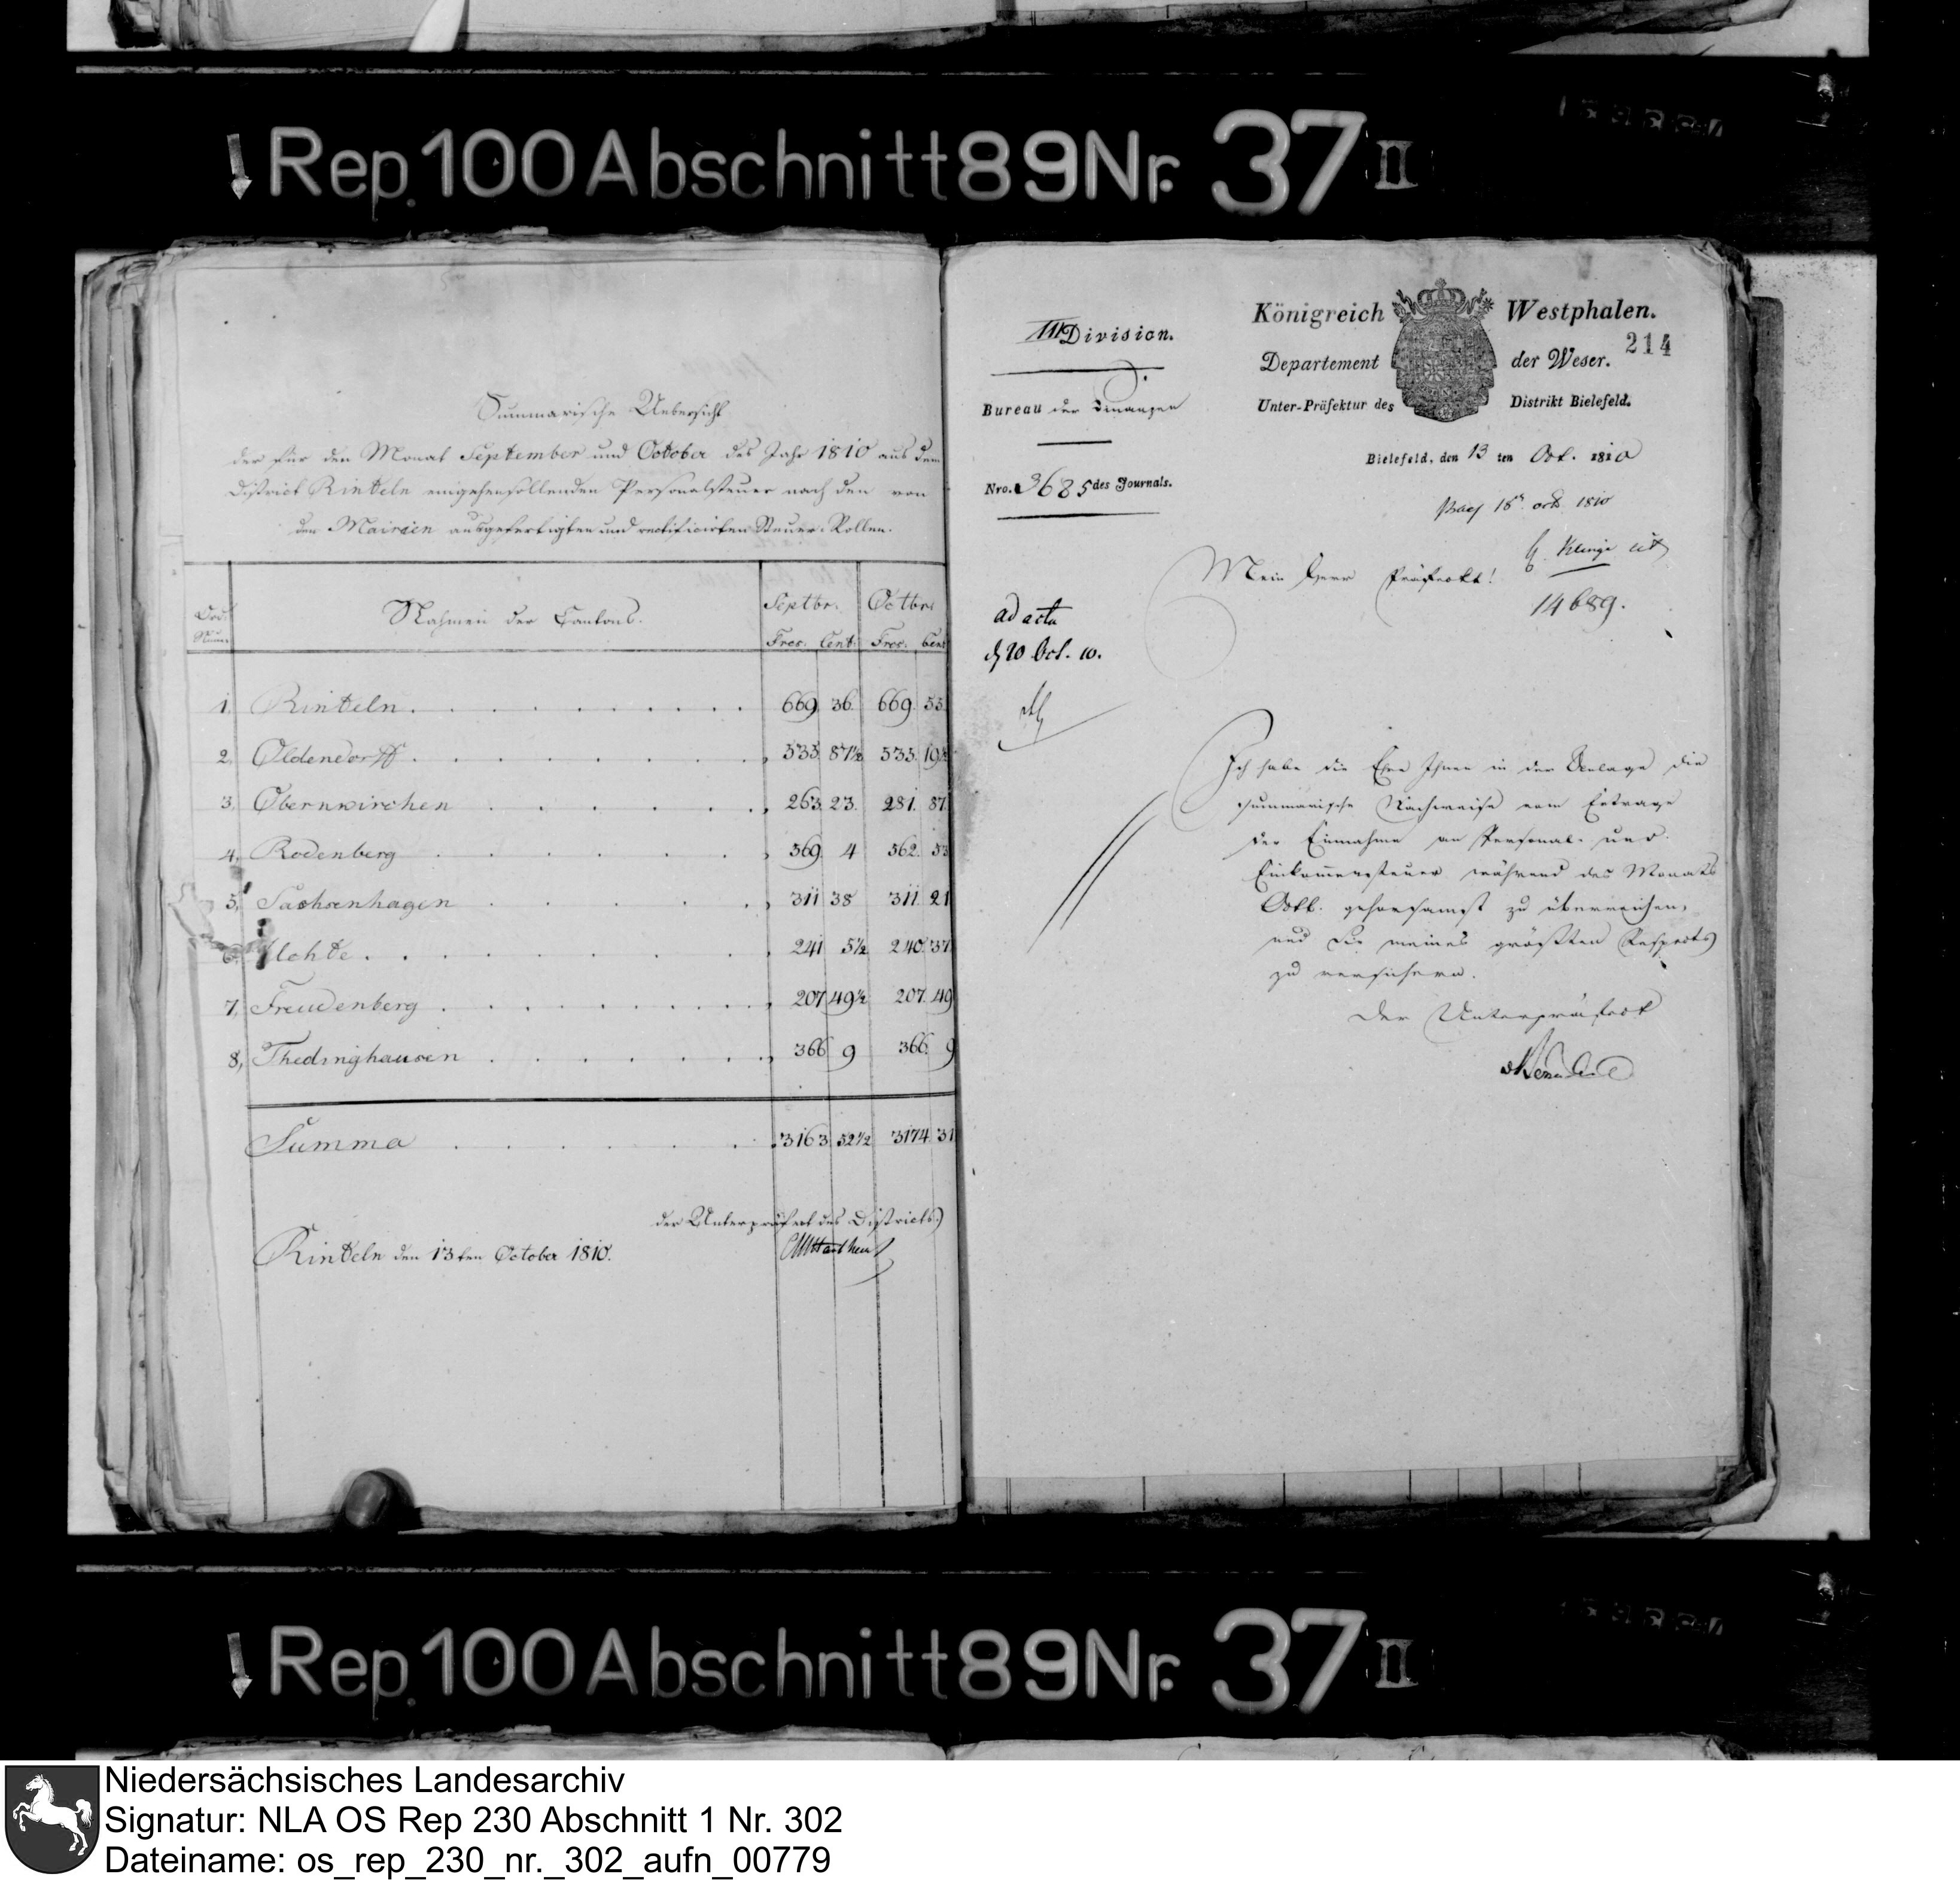 Rep. 100 Abschnitt 89 Nr. 37 II
Summarische Uebersicht
der für den Monat September und October des Jahr 1810 aus dem
District Rinteln eingehensollenden Personalsteuer nach den von
den Mairien ausgefertigten und rectificirten Steuer-Rollen.
Nahmen der Cantons.
Septbr. Octbr.
Frcs. Cent. Frcs. Cent
1. Rinteln. 669 36. 669. 53.
2. Oldendorff. 535 87½ 535. 19½
3. Obernkirchen 263. 23. 281. 87.
4. Rodenberg 569. 4 562. 53
5. Sachsenhagen 311 38 311. 21
6. Uchte. 241 5½ 240. 37
7. Freudenberg 207 49½ 207. 49
8, Thedinghausen 366 9 366. 9
Summa 3163 52½ 3174. 31
der Unterpräfect des Districts
Rinteln den 13ten October 1810.
III Division.
Bureau der Finanzen
Nro. 3685 des Journals.
Königreich Westphalen.
214
Departement der Weser.
Unter-Präfektur des Distrikt Bielefeld.
Bielefeld, den 13 ten Oct. 1810
18 oct. 1810
Mein Herr Präfect!
14689.
ad acta
d 20 Oct. 10.
Ich habe die Ehre Ihnen in der Anlage die
summarische Nachweise vom Ertrage
der Einnahme an Personal- und
Einkommensteuer während des Monats
Octb. gehorsamst zu überreichen,
und Sie meines größten Respects
zu versichern.
Der Unterpräfect
Rep. 100 Abschnitt 89 Nr. 37 II
Niedersächsisches Landesarchiv
Signatur: NLA OS Rep 230 Abschnitt 1 Nr. 302
Dateiname: os_rep_230_nr._302_aufn_00779